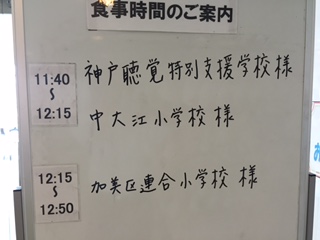 食事時間のご案内
11:40
～
12:15
神戸聴覚特別支援学校 様
中大江小学校 様
12:15
～
12:50
加美区連合小学校 様